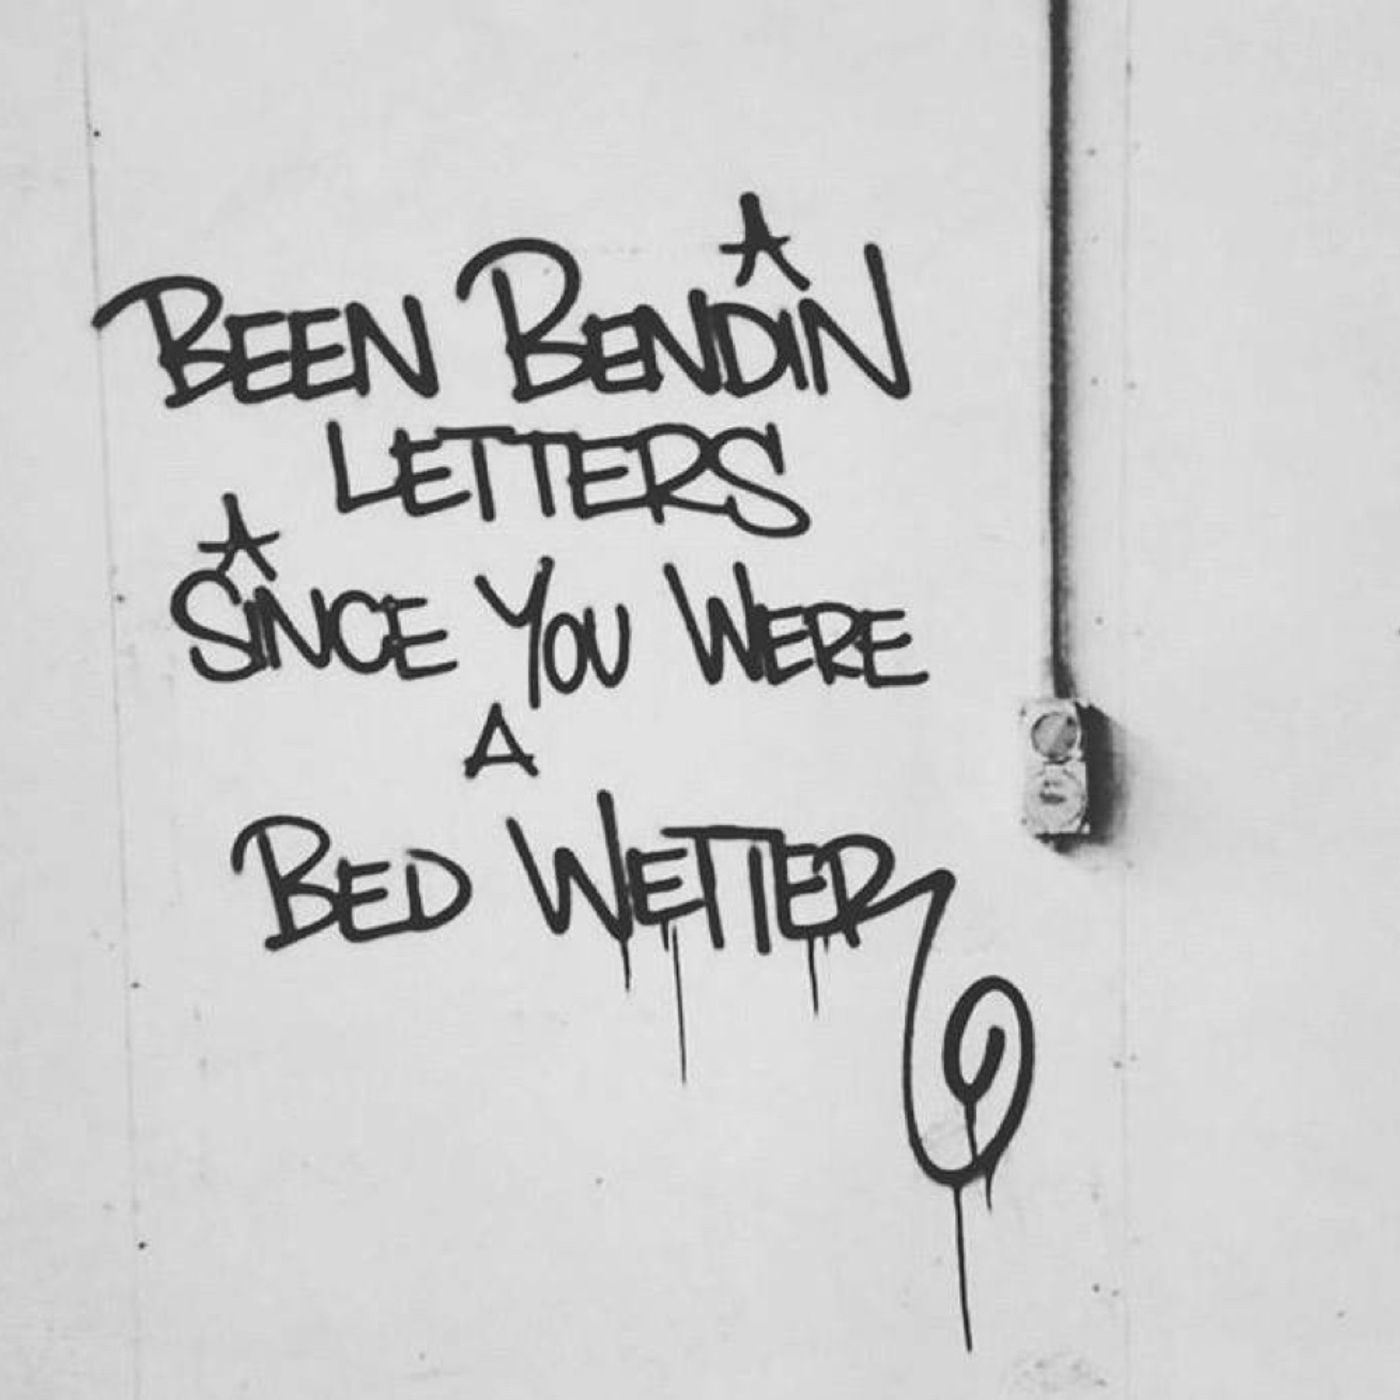 BEEN BENDIN
LETTERS
SINCE YOU WERE
A
BED WETTER